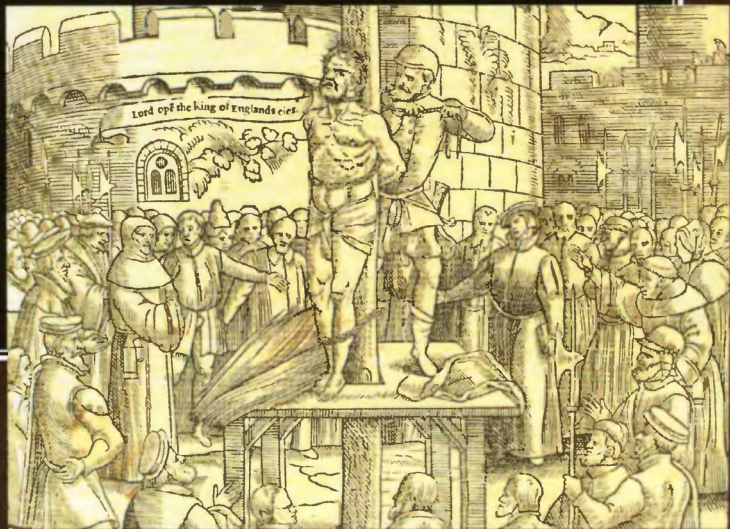 Lord opē the king of Englands eies.